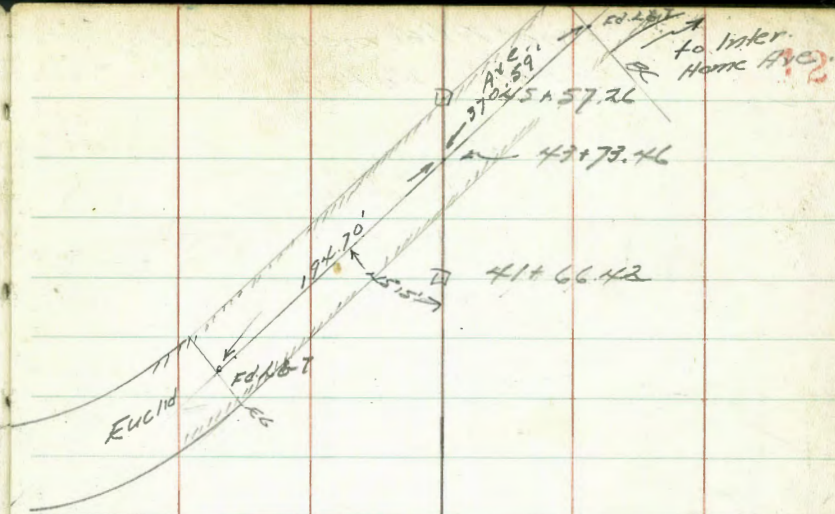 Fd. L&T
to Inter.
Home Ave.
Ave.
370.59'
45+57.26
43+73.46
194.70'
45°15'
41+66.42
Fd. L&T
Euclid
EC